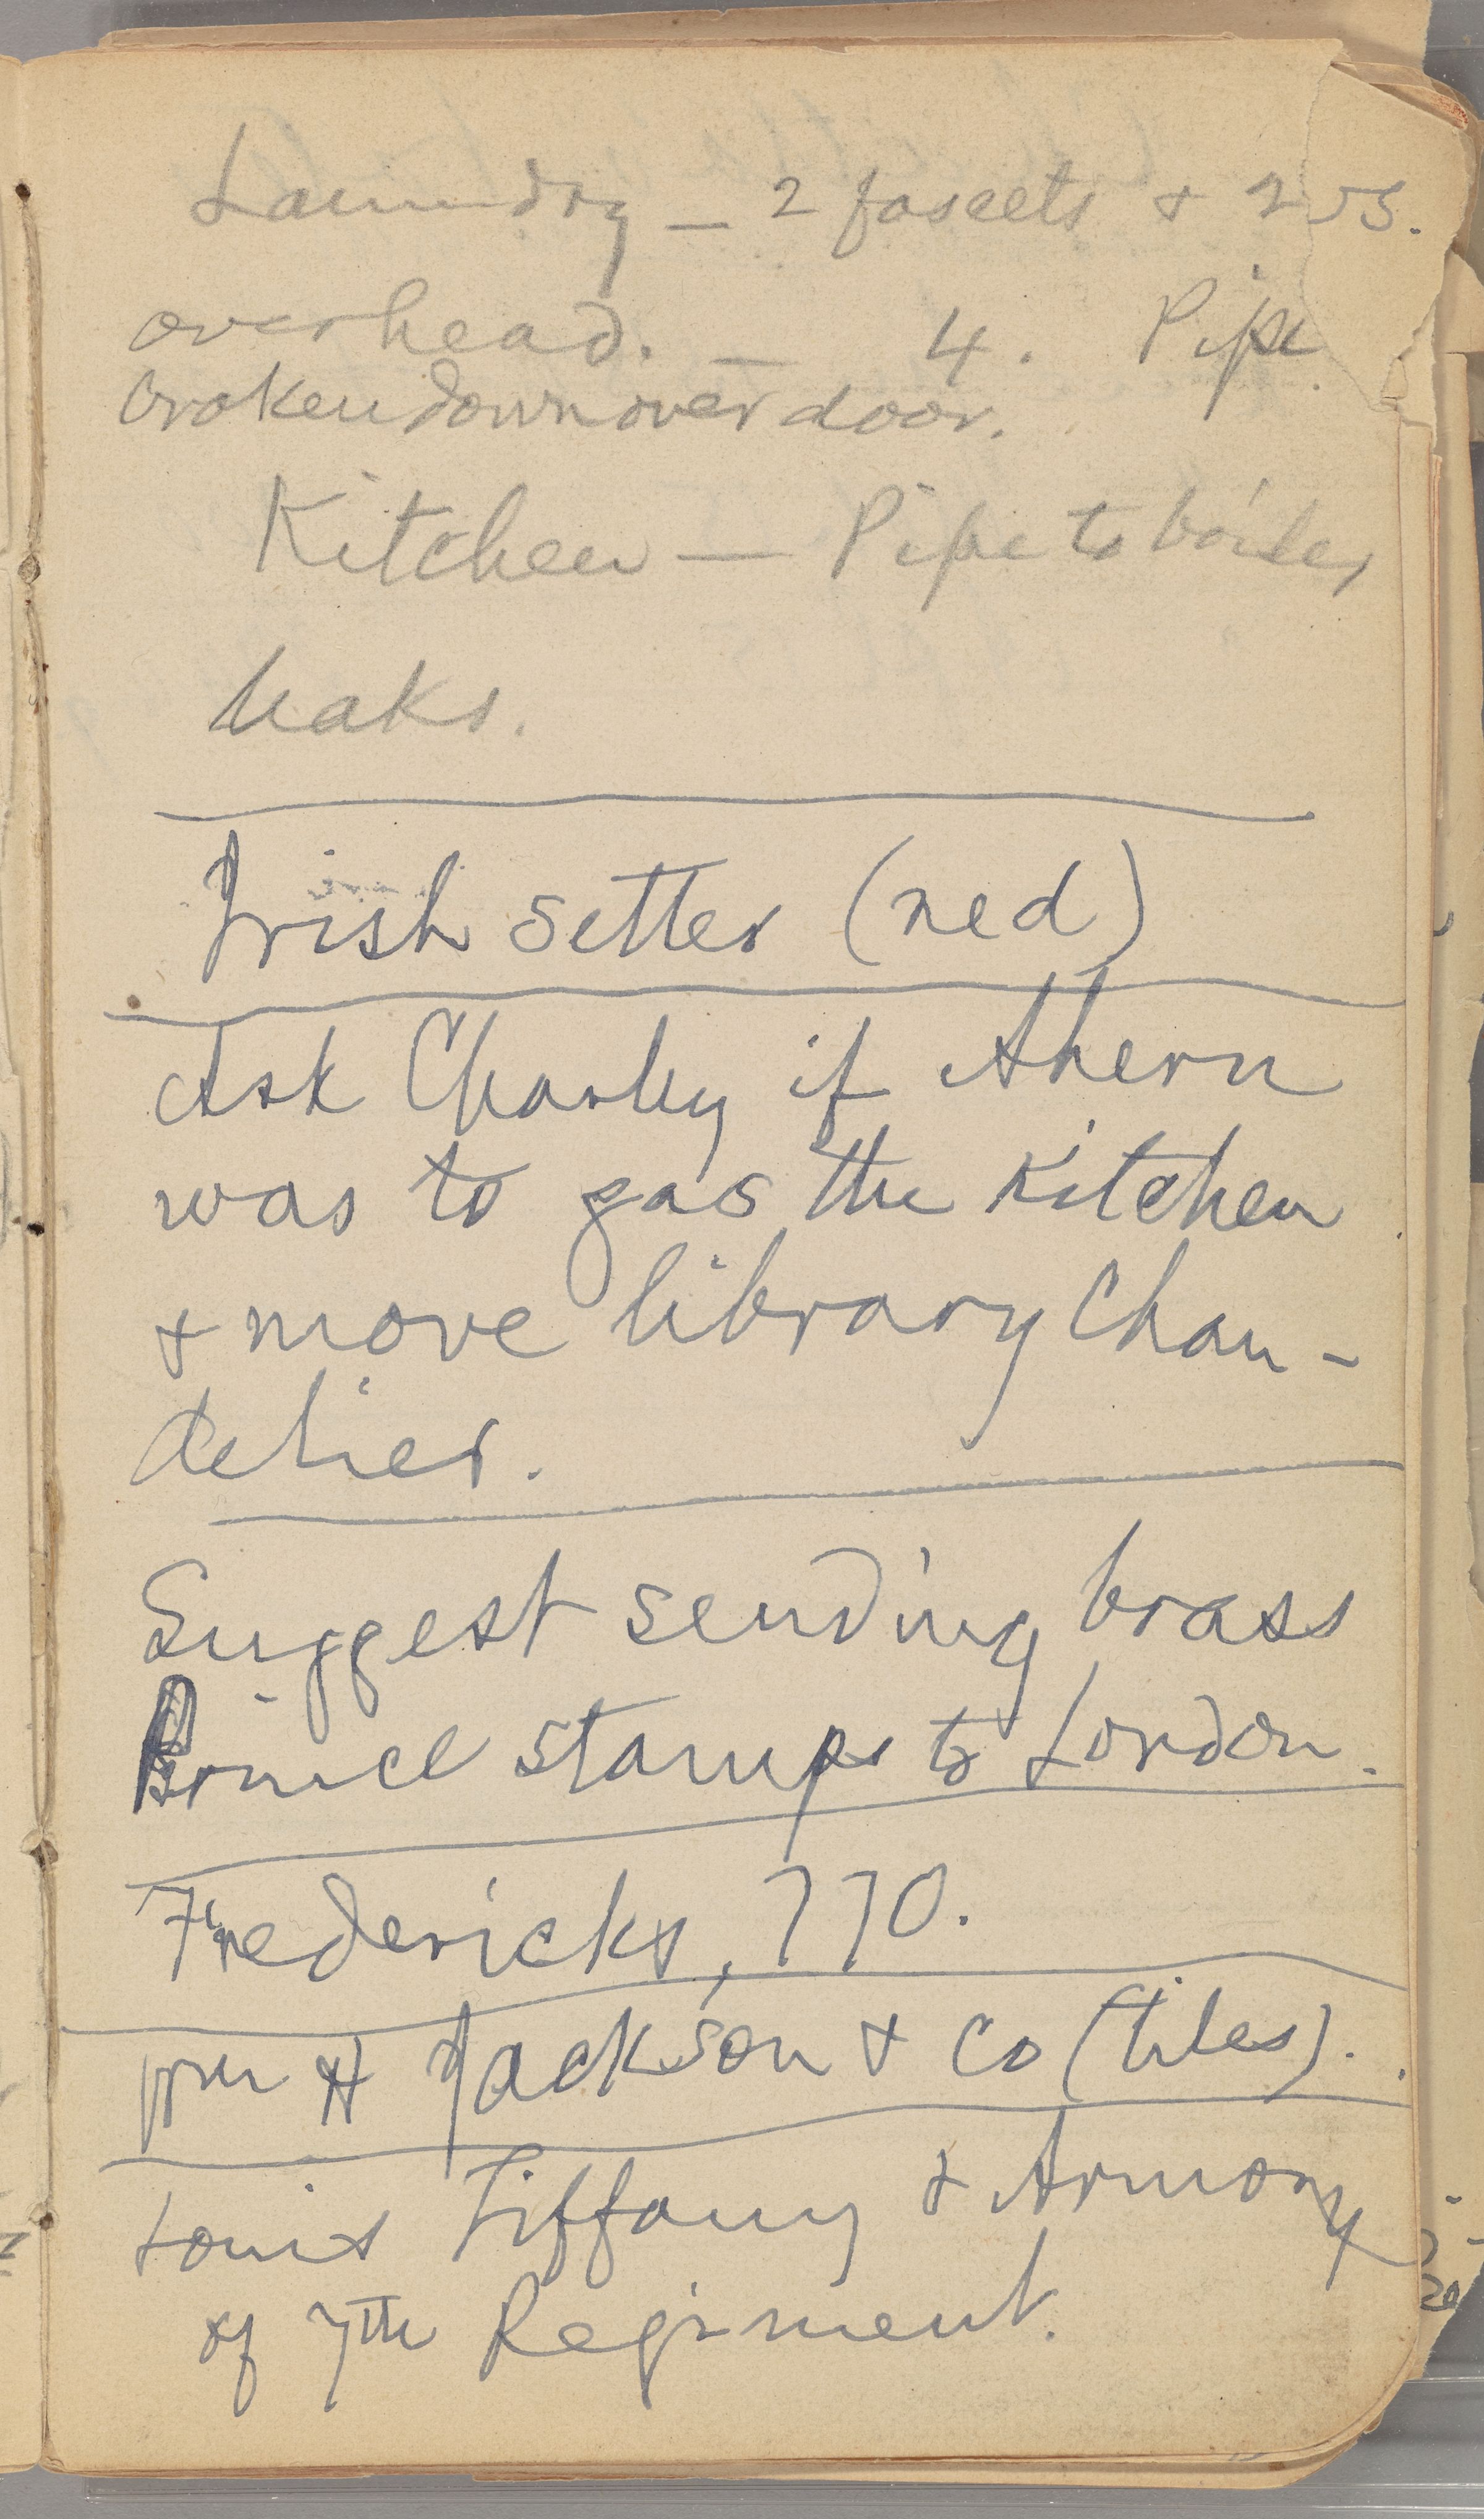 Laundry — 2 foscets & 2
overhead. — 4. Pipe
broken down over door.
Kitchen — Pipe to boiler
leaks.
Irish setter (red)
Ask Charley if Ahern
was to gas the kitchen
& move library chan-
delier.
Suggest sending brass
Prince stamps to London.
Fredericks, 770.
Wm H Jackson & Co (tiles).
Louis Tiffany & Armory
of 7th Regiment.